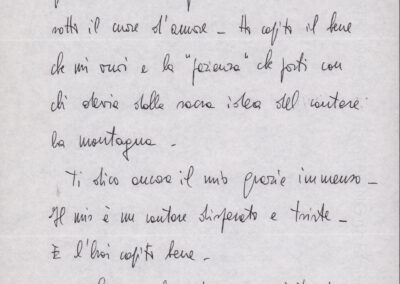 sotto il cuore d'amore - Ho capito il bene
che mi vuoi e la "pazienza" che porti con
chi devia dalla sacra idea del cantare
la montagna -
Ti dico ancora il mio grazie immenso -
Il mio è un cantare disperato e triste -
E l'hai capito bene -